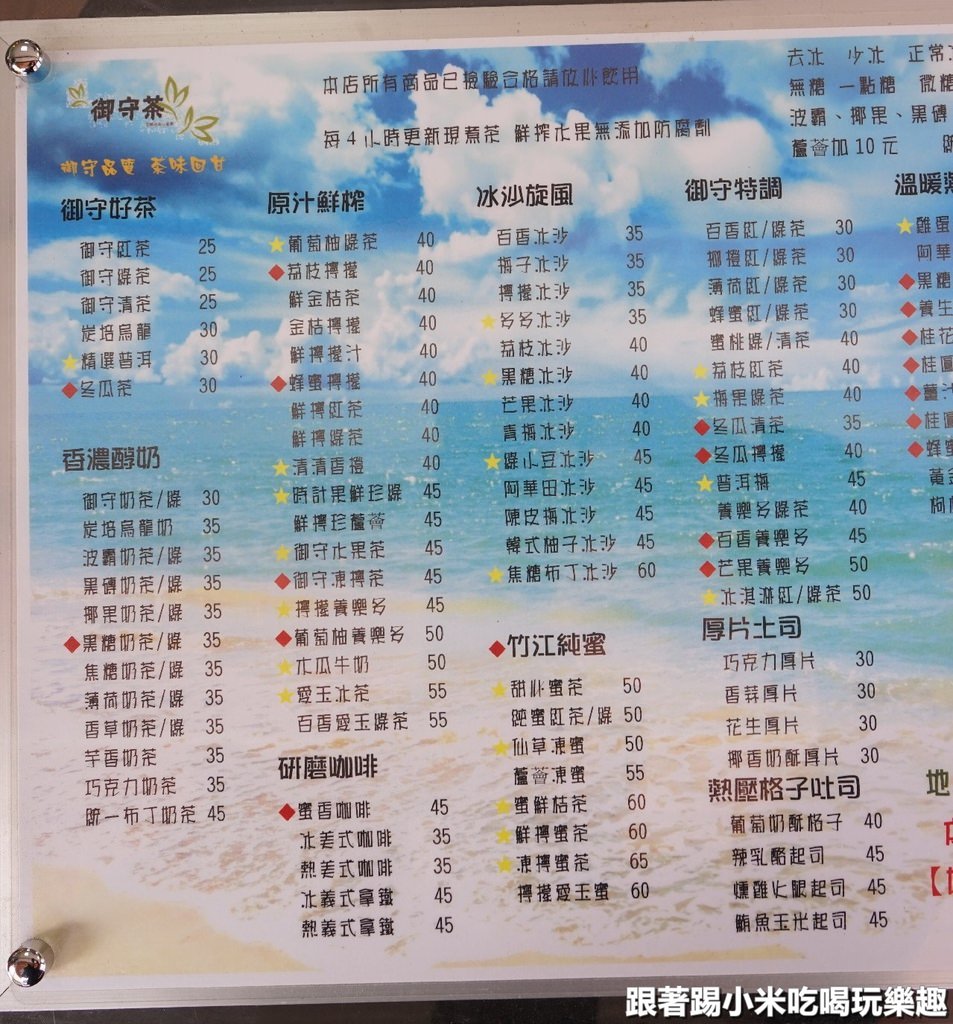 御守茶
御守品質 茶味回甘
本店所有商品已檢驗合格請放心飲用
每4小時更新現煮茶 鮮榨水果無添加防腐劑
去冰 少冰 正常
無糖 一點糖 微糖
波霸、椰果、黑磚
蘆薈加10元
御守好茶
御守紅茶 25
御守綠茶 25
御守清茶 25
炭培烏龍 30
★精選普洱 30
◆冬瓜茶 30
香濃醇奶
御守奶茶/綠 30
炭培烏龍奶 35
波霸奶茶/綠 35
黑磚奶茶/綠 35
椰果奶茶/綠 35
◆黑糖奶茶/綠 35
焦糖奶茶/綠 35
薄荷奶茶/綠 35
香草奶茶/綠 35
芋香奶茶 35
巧克力奶茶 35
統一布丁奶茶 45
原汁鮮榨
★葡萄柚綠茶 40
◆荔枝檸檬 40
鮮金桔茶 40
金桔檸檬 40
鮮檸檬汁 40
◆蜂蜜檸檬 40
鮮檸紅茶 40
鮮檸綠茶 40
★清清香檬 40
★時計果鮮珍綠 45
鮮檸珍蘆薈 45
★御守水果茶 45
◆御守凍檸茶 45
★檸檬養樂多 45
◆葡萄柚養樂多 50
★木瓜牛奶 50
★愛玉冰茶 55
百香愛玉綠茶 55
研磨咖啡
◆蜜香咖啡 45
冰美式咖啡 35
熱美式咖啡 35
冰義式拿鐵 45
熱義式拿鐵 45
冰沙旋風
百香冰沙 35
梅子冰沙 35
檸檬冰沙 35
★多多冰沙 35
荔枝冰沙 40
★黑糖冰沙 40
芒果冰沙 40
青梅冰沙 40
★綠小豆冰沙 45
阿華田冰沙 45
陳皮梅冰沙 45
韓式柚子冰沙 45
★焦糖布丁冰沙 60
◆竹江純蜜
★甜心蜜茶 50
純蜜紅茶/綠 50
★仙草凍蜜 50
蘆薈凍蜜 55
★蜜鮮桔茶 60
★鮮檸蜜茶 60
★凍檸蜜茶 65
檸檬愛玉蜜 60
御守特調
百香紅/綠茶 30
榔檀紅/綠茶 30
薄荷紅/綠茶 30
蜂蜜紅/綠茶 30
蜜桃綠/清茶 40
★荔枝紅茶 40
★梅果綠茶 40
◆冬瓜清茶 35
◆冬瓜檸檬 40
★普洱梅 45
養樂多綠茶 40
◆百香養樂多 45
◆芒果養樂多 50
★冰淇淋紅/綠茶 50
厚片土司
巧克力厚片 30
香蒜厚片 30
花生厚片 30
椰香奶酥厚片 30
熱壓格子吐司
葡萄奶酥格子 40
辣乳酪起司 45
燻雞火腿起司 45
鮪魚玉米起司 45
溫暖
★雞蛋
阿華
◆黑糖
◆養生
◆桂花
◆桂圓
◆薑汁
◆桂圓
◆蜂蜜
黃金
地
跟著踢小米吃喝玩樂趣